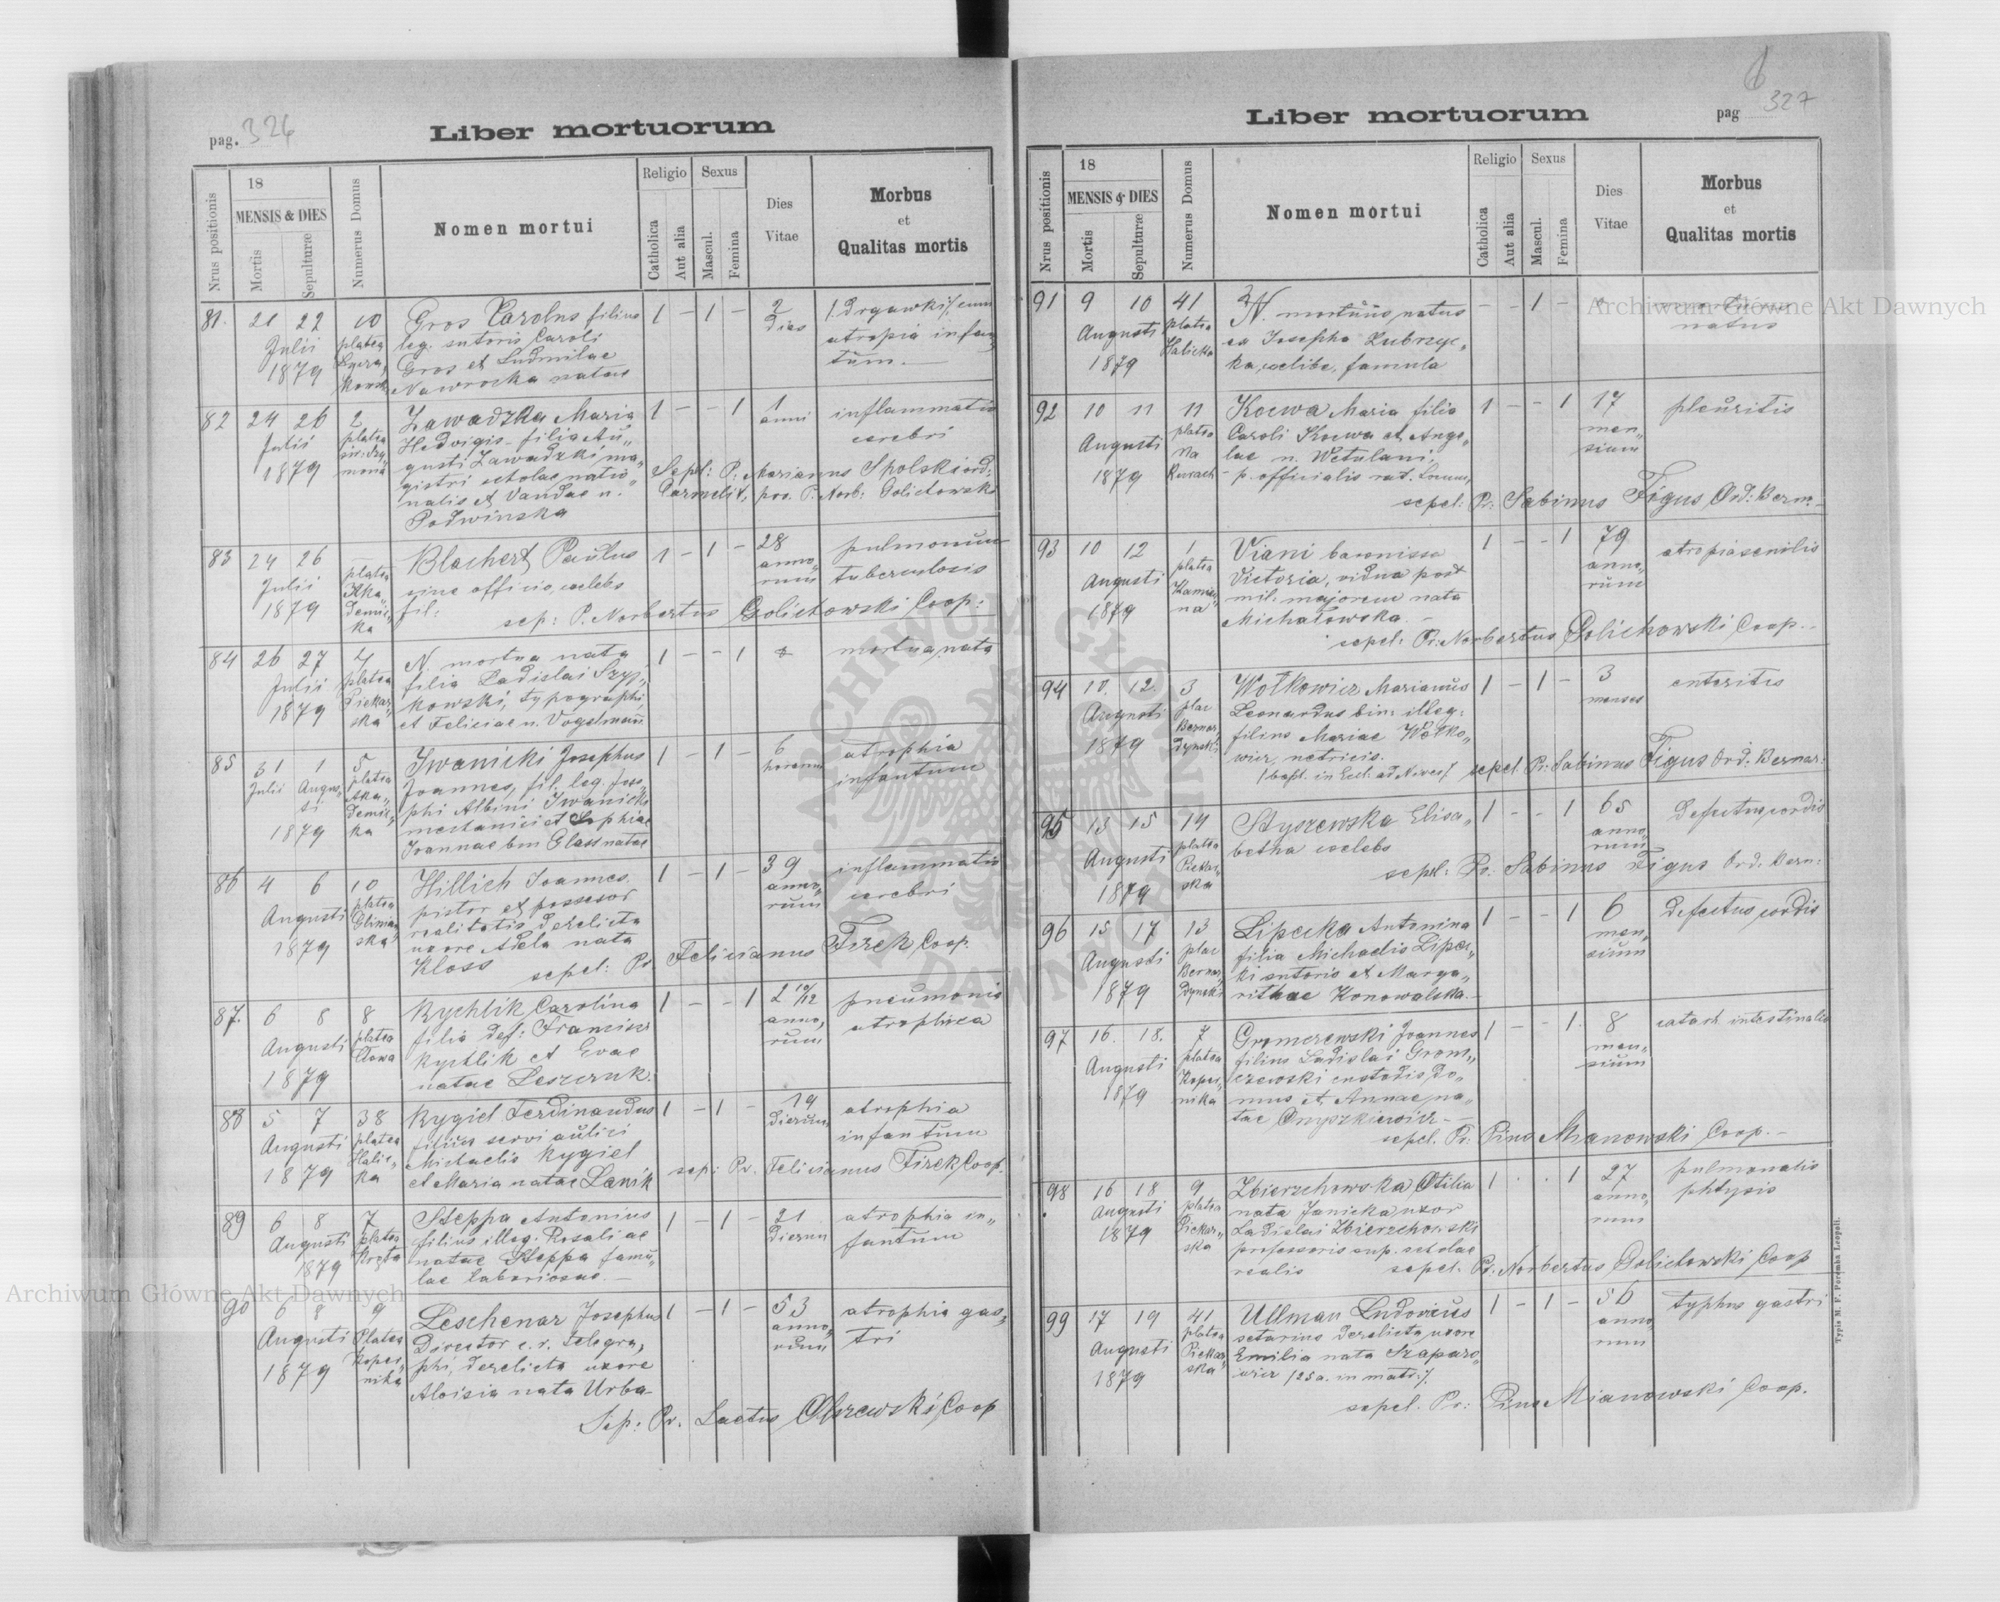 pag. 326
Liber mortuorum
Nrus positionis
18
MENSIS & DIES
Mortis
Sepulturæ
Numerus Domus
Nomen mortui
Religio
Catholica
Aut alia
Sexus
Mascul.
Femina
Dies
Vitae
Morbus
et
Qualitas mortis
81. 21 22 10 Gros Carolus filius 1 – 1 – 2 /: Drgawki :/ cum
Julii platea leg. sutoris Caroli dies atropia infan„
1879 Lycza„ Gros et Ludmilae tum.
kowsk Nawrocka natae
82 24 26 2 Zawadzka Maria 1 – – 1 1 inflammatio
Julii platea Hedvigis filia Au„ anni cerebri
1879 gusti Zawadzki ma„
gistri scholae natio„ Sepl: P. Marianus Spolski ord:
nalis et Vandae n. Carmelit. pro. P. Norb: Golichowski
Podwinska
83 24 26 – Blachert Paulus 1 – 1 – 28 pulmonum
Julii platea sine officio, coelebs anno„ tuberculosis
1879 Aka„ fil: rum
demic„ sep: P. Norbertus Golichowski Coop:
ka
84 26 27 4 N. mortua nata 1 – – 1 mortua nata
Julii platea filia Ladislai Szyj„
1879 Piekar„ kowski, typographi,
ska et Feliciae n. Vogelmann
85 31 1 5 Iwanicki Josephus 1 – 1 – 6 atrophia
Julii Augus„ platea Joannes, fil. leg. Jos„ horarum infantum
ti Aka„ phi Albini Iwanicki
1879 demic„ mechanici et Sophiae
ka Joannae bin Glass natae
86 4 6 10 Hillich Joannes 1 – 1 – 39 inflammatio
Augusti platea pistor et possesor anno„ cerebri
1879 Glinian„ realitatis derelicta rum
ska uxore Adela nata
Kloss sepel: Pr. Felicianus Firek Coop.
87. 6 8 8 Rychlik Carolina 1 – – 1 2 10/12 pneumonia
Augusti platea filia def: Francisci anno„ atrophica
1879 Cłowa Rychlik et Evae rum
natae Leszczuk.
88 5 7 38 Rygiel Ferdinandus 1 – 1 – 19 atrophia
Augusti platea filius servi aulici dierum infantum
1879 Halic„ Michaelis Rygiel
ka et Maria natae Lenik sep: Pr. Felicianus Firek Coop.
89 6 8 7 Steppa Antonius 1 – 1 – 21 atrophia in„
Augusti platea filius illeg. Rosaliae dierum fantum
1879 Kręta natae Steppa famu„
lae laboriosae. –
90 6 8 9 Leschenar Josephus 1 – 1 – 53 atrophia gas„
Augusti Platea Director c. r. telegra„ anno„ tri
1879 Koper„ phi, derelicta uxore rum
nika Aloisia nata Urba–
Sep: Pr. Laetus Olszewski, Coop
327
Liber mortuorum
pag
Nrus positionis
18
MENSIS & DIES
Mortis
Sepulturæ
Numerus Domus
Nomen mortui
Religio
Catholica
Aut alia
Sexus
Mascul.
Femina
Dies
Vitae
Morbus
et
Qualitas mortis
91 9 10 41 N. mortuus natus – – 1 –
Augusti platea ex Josepha Zubrzyc„ natus
1879 Halicka ka, coelibe, famula
92 10 11 11 Kocwa Maria filia 1 – – 1 17 pleuritis
Augusti platea Caroli Kocwa et Ange„ men„
1879 Na lae n. Wetulani, sium
Rurach – p. officialis
sepel: Pr. Sabinus Figus Ord: Bern. –
93 10 12 1 Viani baronissa 1 – – 1 79 atropia senilis
Augusti platea Victoria, vidua post anno„
1879 Kamien„ mil. majorem nata rum
na Michałowska. –
sepel: Pr. Norbertus Golichowski Coop. –
94 10. 12. 3 Wołkowicz Marianus 1 – 1 – 3 enteritis
Augusti plac Leonardus bin: illeg: menses
1879 Bernar„ filius Mariae Wołko„
dynski wicz, nutricis.
/bapt. in Eccl. ad Nives/ sepel Pr. Sabinus Figus Ord. Bernar:
95 13 15 14 Styszewska Elisa„ 1 – – 1 65 Defectus cordis
Augusti platea betha coelebs anno„
1879 Piekar„ rum
ska sepel: Pr. Sabinus Figus Ord. Bern:
96 15 17 13 Lipecka Antonina 1 – – 1 6 Defectus cordis
Augusti plac filia Michaelis Lipec„ men„
1879 Bernar„ ki sutoris et Marga„ sium
dynski rithae Konowalska. –
97 16. 18. 7 Gromczewski Joannes 1 – – 1. 8 catarh intestinalis
Augusti platea filius Ladislai Grom„ men„
1879 Koper„ czewski custodis do„ sium
nika mus et Annae na„
tae Onyszkiewicz –
sepel. Pr. Pius Mianowski Coop. –
98 16 18 9 Zbierzchowska Otilia 1 . . 1 27 pulmonalis
Augusti platea nata Janicka uxor anno„ phtysis
1879 Piekar„ Ladislai Zbierzchowski rum
ska professoris sup. scholae
realis sepel. Pr. Norbertus Golichowski Coop
99 17 19 41 Ullman Ludovicus 1 – 1 – 56 typhus gastri
Augusti platea derelicta uxore anno„
1879 Piekar„ Emilia nata Szaparo„ rum
ska wicz /25 a. in matr:/.
sepel. Pr: Pius Mianowski Coop.
Typis M. F. Poremba Leopoli.
Archiwum Główne Akt Dawnych
Archiwum Główne Akt Dawnych
ARCHIWUM GŁÓWNE AKT DAWNYCH